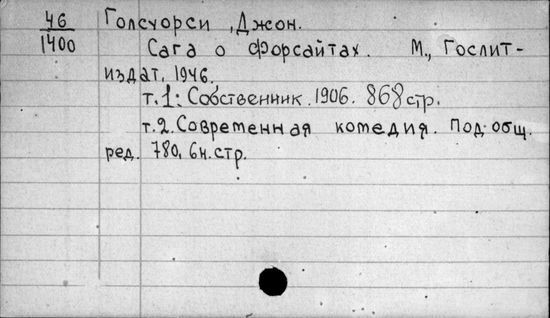 46
1400
Голсуорси, Джон.
Сага о Форсайтах. М., Гослит-
издат, 1946.
т.1: Собственник. 1906. 868 стр.
т.2. Современная комедия. Под общ.
ред. 780, 6н. стр.